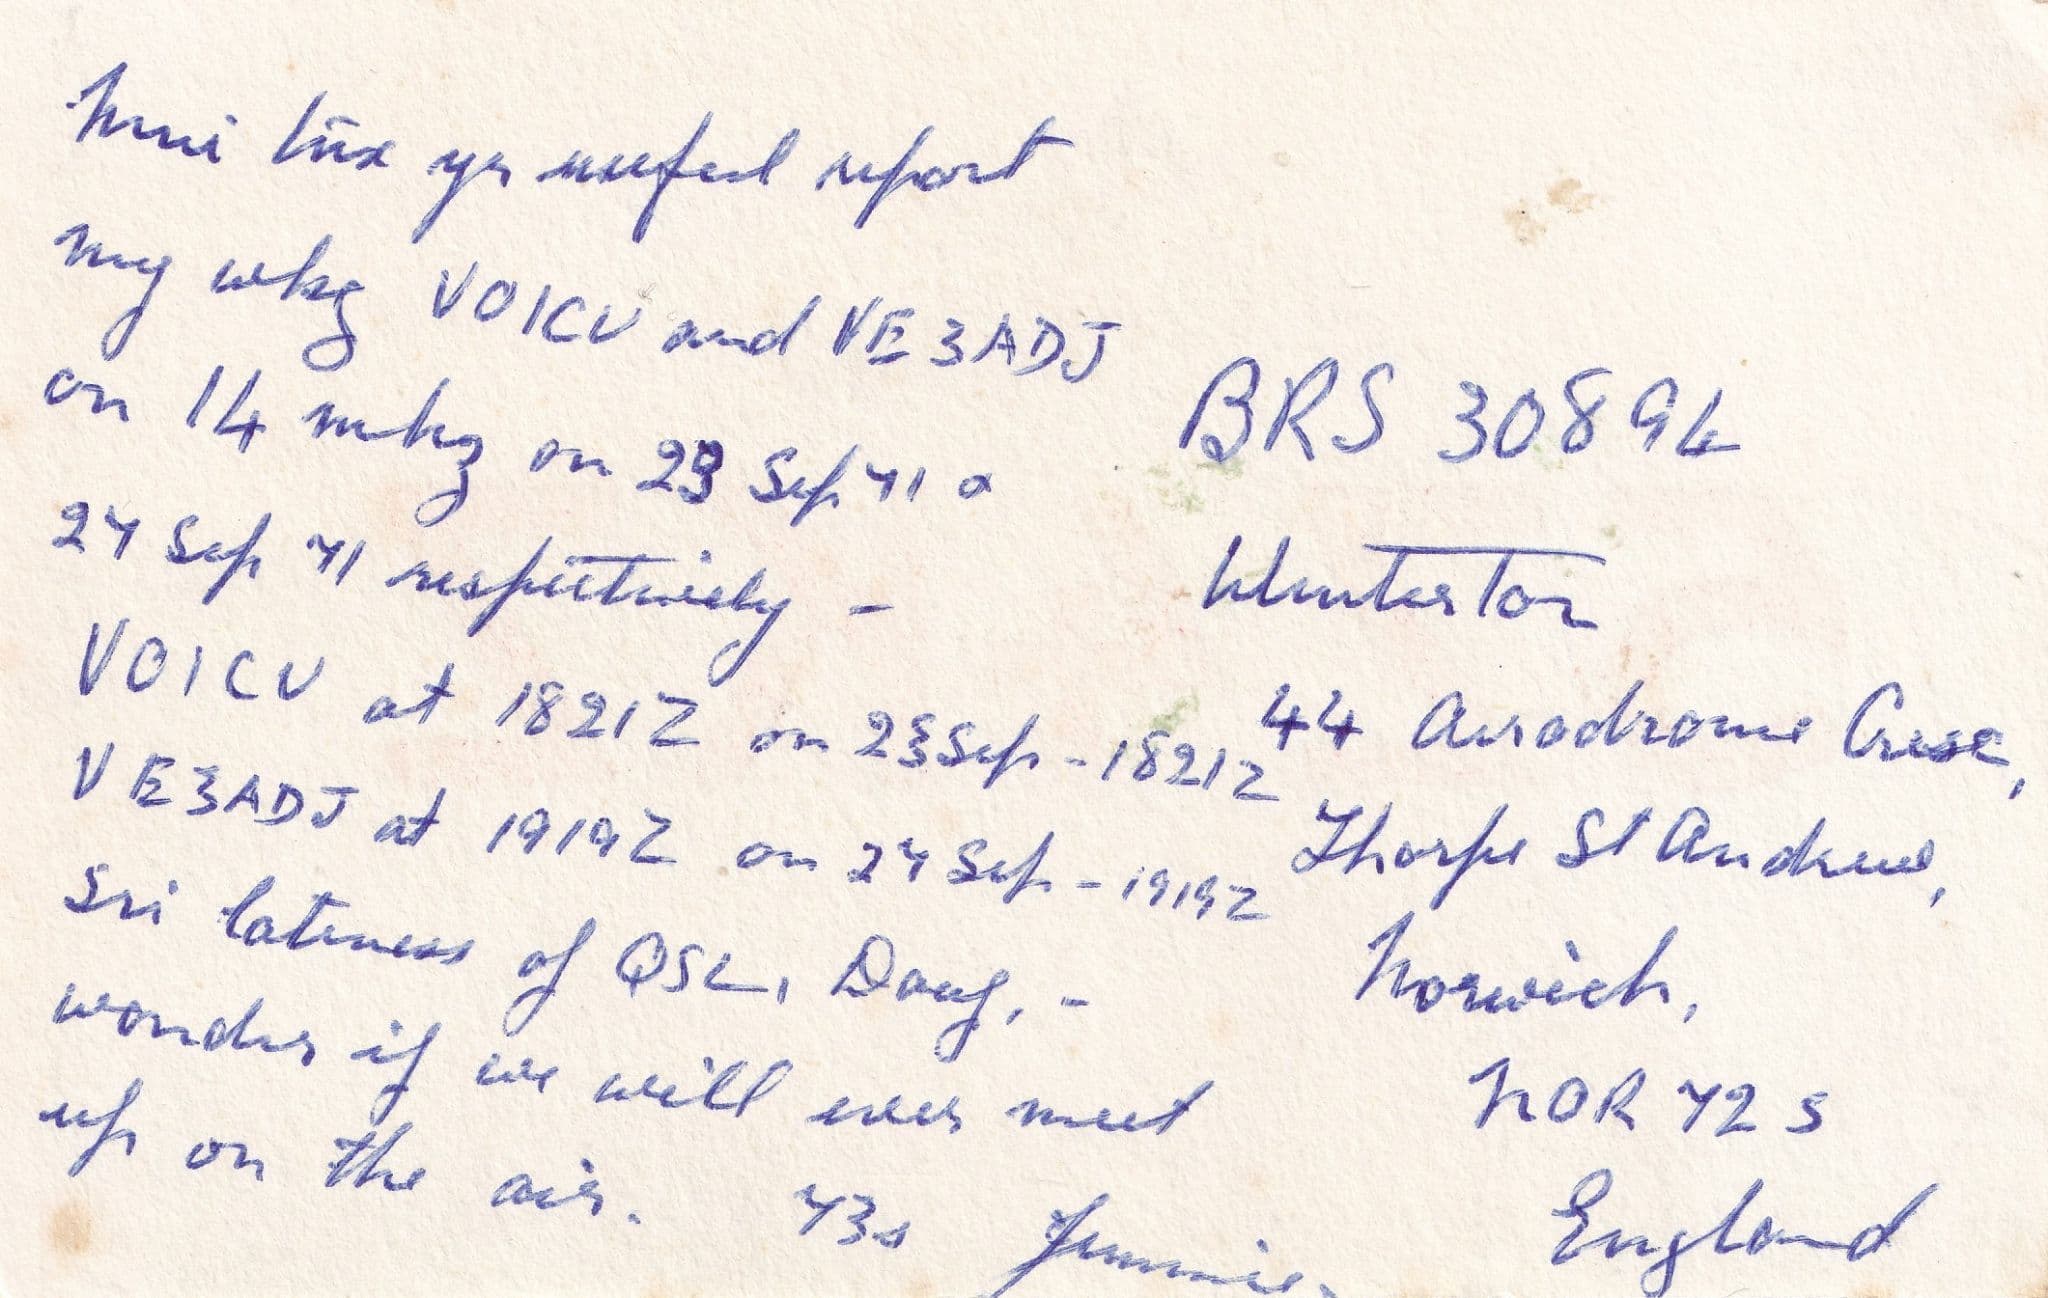 Mni tnx yr useful report
my wkg VO1CU and VE3ADJ
on 14 mhz on 23 Sep 71 &
27 Sep 71 respectively -
VO1CU at 1821Z on 23 Sep - 1821Z
VE3ADJ at 1919Z on 27 Sep - 1919Z
Sri lateness of QSL, Doug, -
wonder if we will ever meet
up on the air. 73s Jimmie.
BRS 30894
Winterton
44 Aerodrome Cresc,
Thorpe St Andrew,
Norwich,
NOR 72S
England